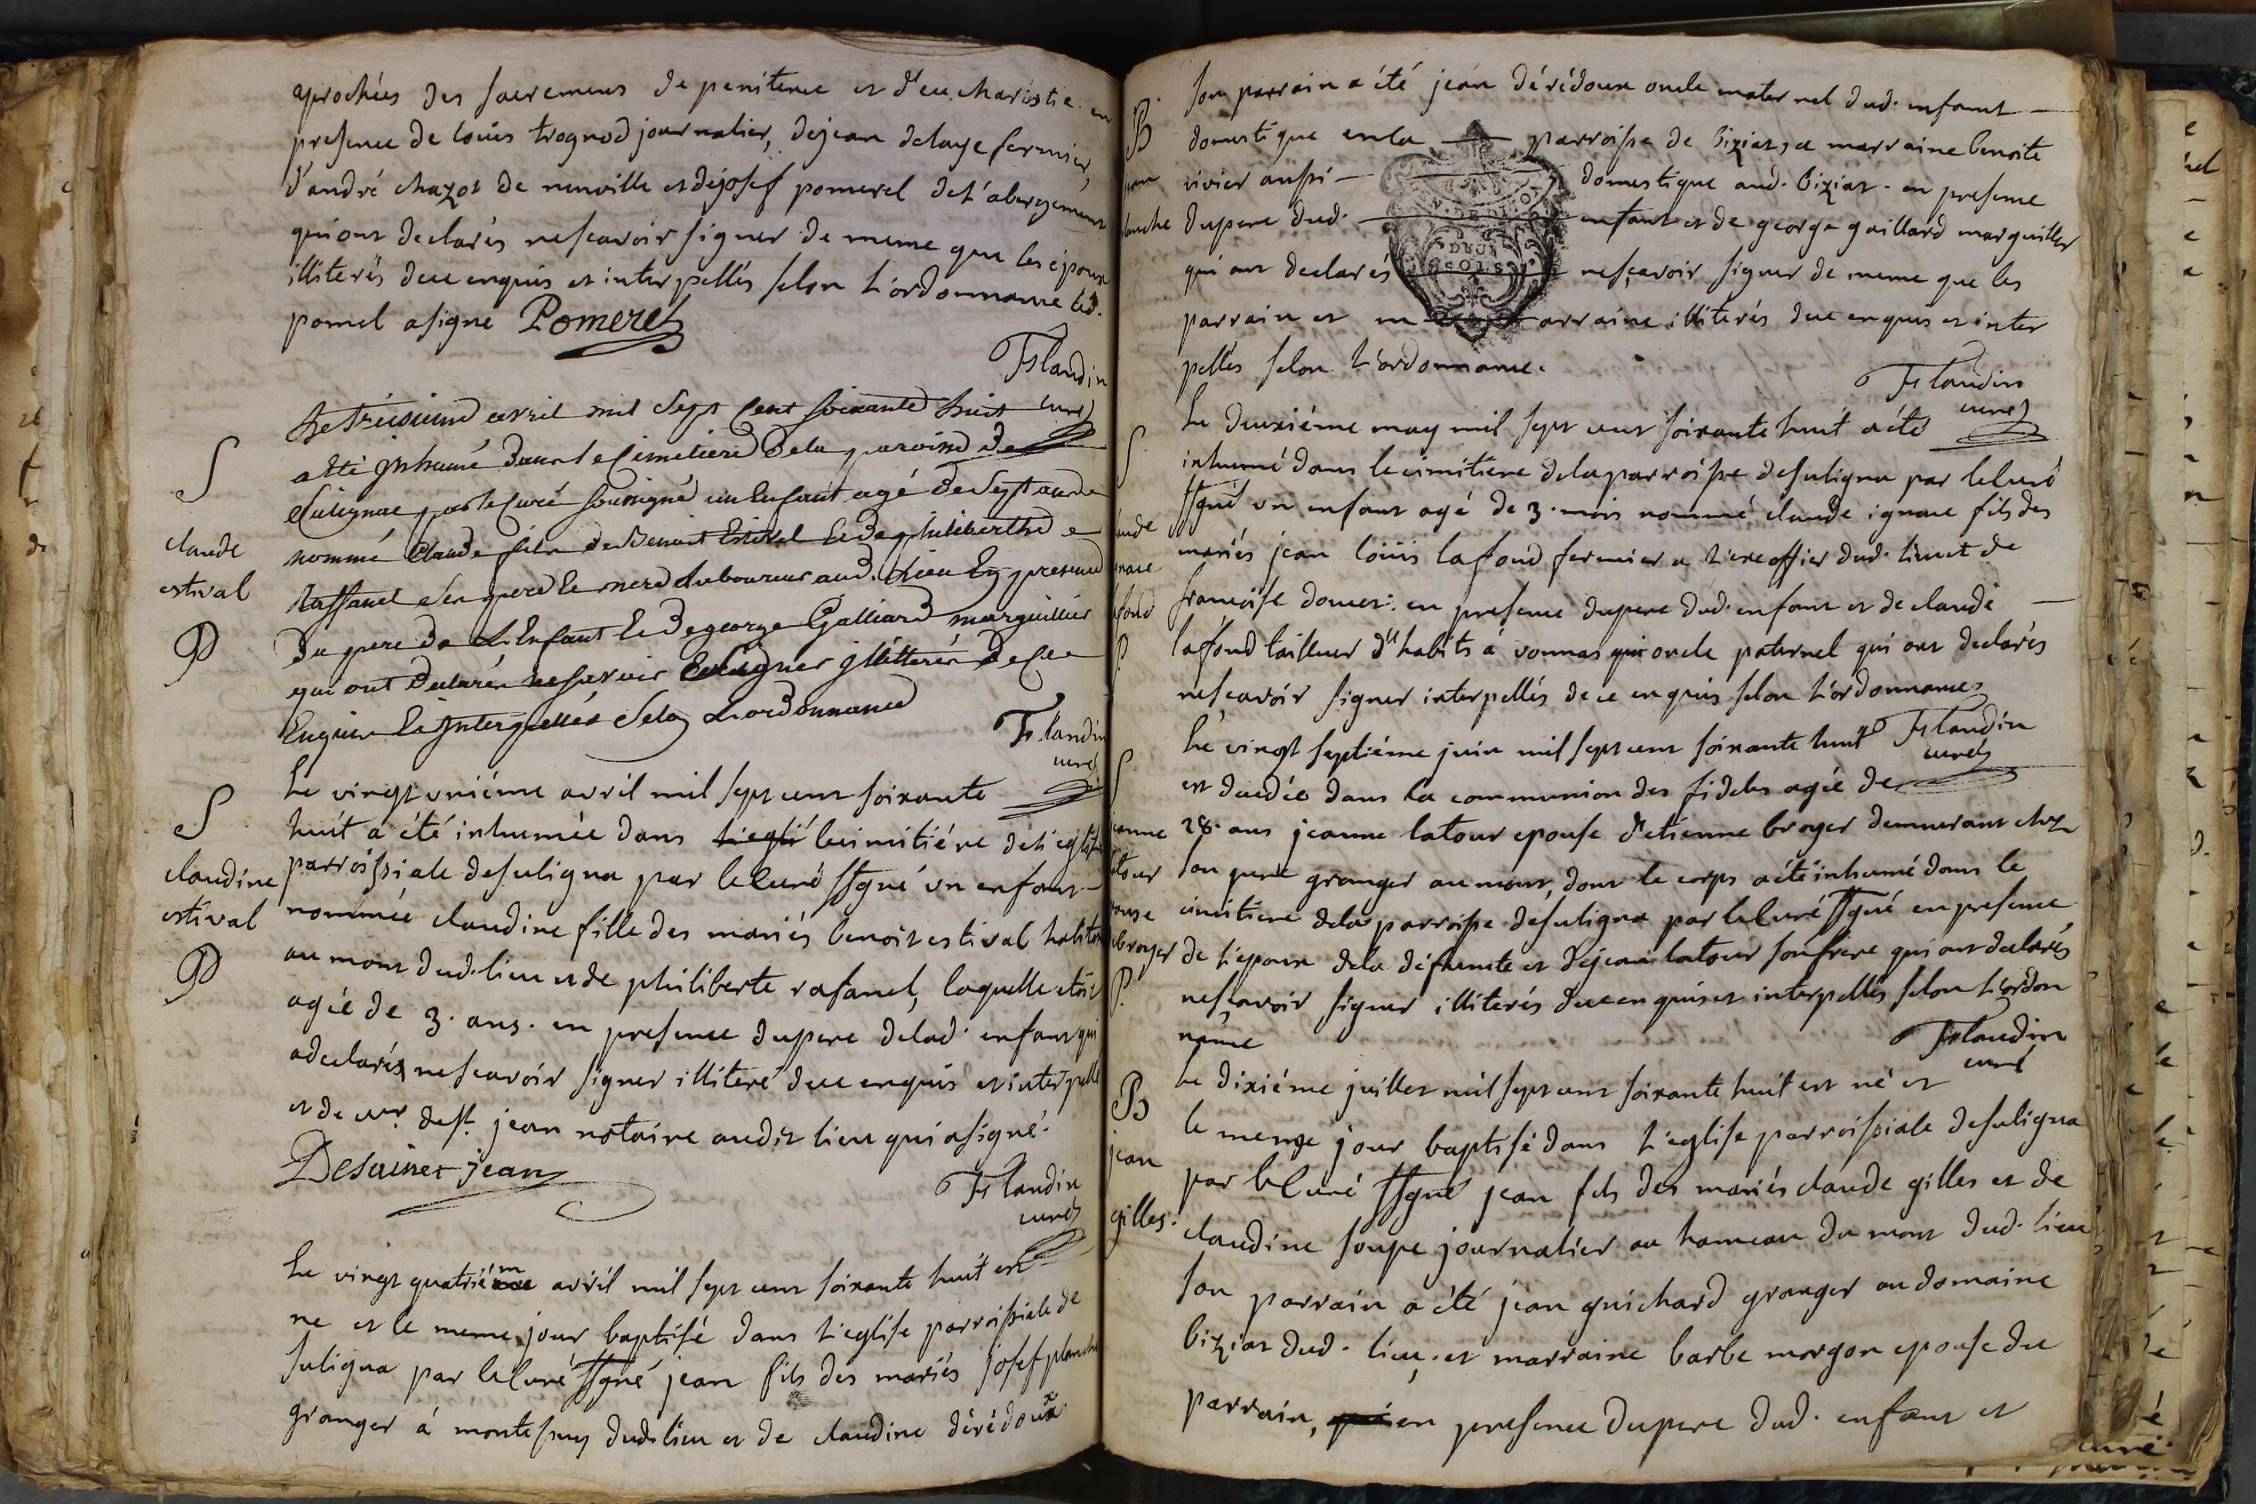 aprochées des sacremens de penitence et d'eucharistie en
presence de loüis trognod journalier, dejean delaye fermier,
d'andré chazot de neuville et dejosef pomerel de l'abergement
qui ont declarés nescavoir signer de meme que les epoux
illiterés de ce enquis et interpellés selon l'ordonnance led.
pomel asigné Pomerel
Flandin
curé
Le Treisieme avril mil Sept Cent Soixante huit
a été jnhumé dans le Cimetiere Dela paroisse de
Sulignac par le Curé soussigné un Enfant agé De Sept ans
S
claude
estival
P
nommé Claude fils de Benoit Estival Et de philiberthe
Raffanel Ses pere Et mere Laboureur aud. Lieu En presence
Du pere de L'Enfant Et De george Galliard marguillier
qui ont Declarés nescavoir Signer jllitterés De ce
Enquis Et jnterpellés Selon L'ordonnance
Flandin
curé
S
claudine
estival
P
Le vingt uniéme avril mil sept cent soixante
huit a été inhumée dans l'eglis le cimitiére de l'eglise
parroissiale desuligna par le Curé ssgné un enfant
nommée claudine fille des mariés benoit estival habitant
au mont dud. lieu et de philiberte rafanel, laquelle etoit
agée de 3. ans. en presence dupere delad. enfant qui
adeclarés nescavoir signer illiteré de ce enquis et interpellé
et de mr. dest. jean notaire audit lieu qui asigné.
Desainet jean
Flandin
curé
Le vingt quatriéme avril mil sept cent soixante huit est
né et le meme jour baptisé dans l'eglise parroissiale de
suligna par le Curé ssgné jean fils des mariés josef planche
granger á montespey dud. lieu et de claudine dérédoux
B
jean
planche
son parrain a été jean dérédoux oncle maternel dud. enfant
domestique en la parroisse de biziat, et marraine benoite
vivier aussi domestique aud. biziat. en presence
dupere dud. enfant et de george gaillard marguiller
qui ont declarés nescavoir signer de meme que les
parrain et marraine illiterés de ce enquis et inter
pellés selon l'ordonnance.
Flandin
curé
S
Le deuxiéme may mil sept cent soixante huit a été
inhumé dans le cimitiere delaparroisse desuligna par le Curé
ssgné un enfant agé de 3. mois nommé claude ignace fils des
mariés jean loüis lafond fermier a dud. lieu et de
françoise donet: en presence dupere dud. enfant et de claude
lafond tailleur d'habits á vonnas oncle paternel qui ont declarés
nescavoir signer interpellés de ce enquis selon l'ordonnance
Flandin
curé
Le vingt septiéme juin mil sept cent soixante huit
est decedée dans la communion des fidels agée de
28. ans jeanne latour epouse d'etienne broyer demeurant chez
son pere granger au mont, dont le corps a été inhumé dans le
cimitiere dela parroisse desuligna par le Curé ssgné en presence
de l'epoux dela défunte et dejean latour son frere qui ont declarés
nescavoir signer illiterés de ce enquis et interpellés selon l'ordon
nance
Flandin
curé
B
jean
gilles.
Le dixiéme juillet mil sept cent soixante huit est né et
le meme jour baptisé dans l'eglise parroissiale desuligna
par le Curé ssgné jean fils des mariés claude gilles et de
claudine soupe journalier au hameau du mont dud. lieu
son parrain a été jean guichard granger au domaine
biziat dud. lieu, et marraine barbe morgon epouse du
parrain, en presence dupere dud. enfant et